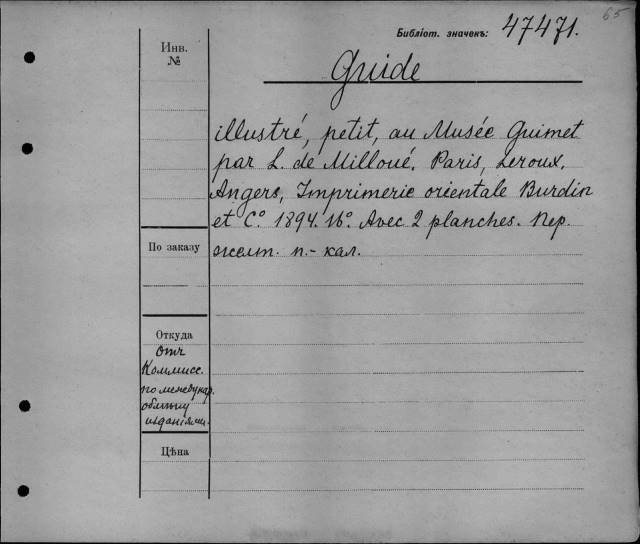 65
Библіот. значекъ: 47471.
Инв.
№
Guide
illustré, petit, au Musée Guimet
par L. de Milloué. Paris, Leroux,
Angers, Imprimerie orientale Burdin
et Cº. 1894. 16º. Avec 2 planches. Пер.
желт. п.- кал.
По заказу
Откуда
отъ
Коммисс.
по междунар.
обмѣну
изданіями.
Цѣна